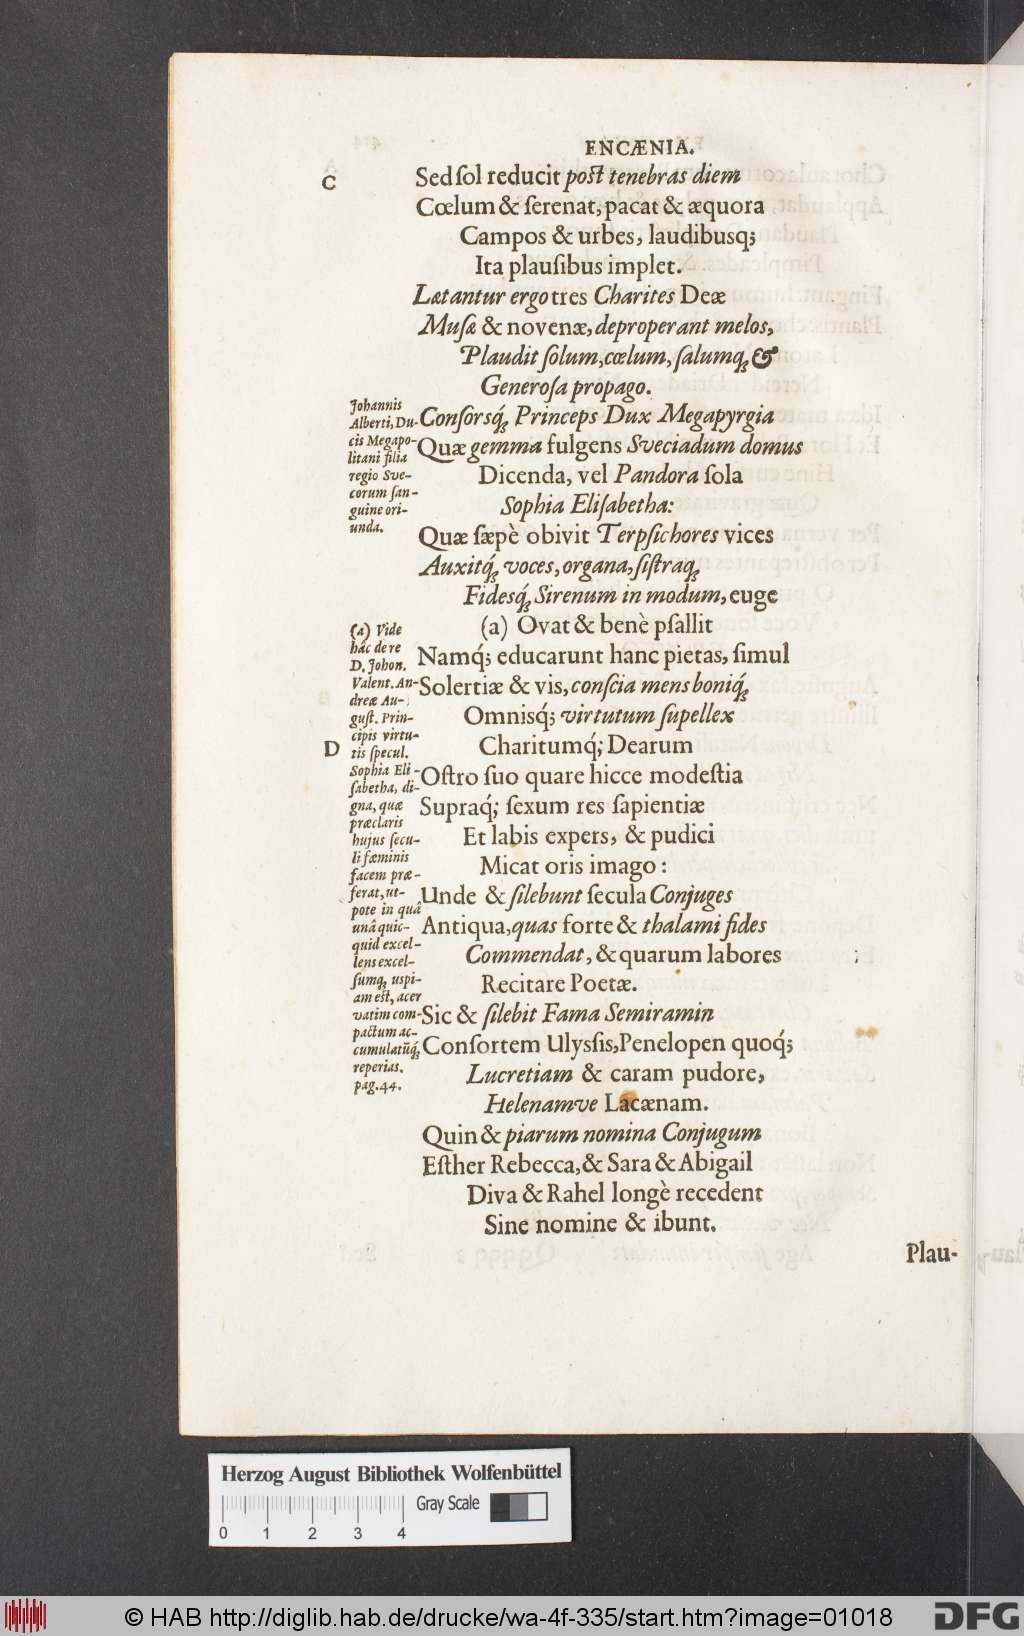 ENCÆNIA.
C
Sed ſol reducit poſt tenebras diem
Cœlum & ſerenat, pacat & æquora
Campos & urbes, laudibusq́;
Ita plauſibus implet.
Lætantur ergo tres Charites Deæ
Muſæ & novenæ, deproperant melos,
Plaudit ſolum, cœlum, ſalumq́; &
Generoſa propago.
Conſorsq́; Princeps Dux Megapyrgia
Quæ gemma fulgens Sveciadum domus
Dicenda, vel Pandora ſola
Sophia Eliſabetha:
Quæ ſæpè obivit Terpſichores vices
Auxitq́; voces, organa, ſiſtraq́;
Fidesq́; Sirenum in modum, euge
(a) Ovat & benè pſallit
Namq́; educarunt hanc pietas, ſimul
Solertiæ & vis, conſcia mens boniq́;
Omnisq́; virtutum ſupellex
Charitumq́; Dearum
Oſtro ſuo quare hicce modeſtia
Supraq́; ſexum res ſapientiæ
Et labis expers, & pudici
Micat oris imago:
Unde & ſilebunt ſecula Conjuges
Antiqua, quas forte & thalami fides
Commendat, & quarum labores
Recitare Poetæ.
Sic & ſilebit Fama Semiramin
Conſortem Ulysſis, Penelopen quoq́;
Lucretiam & caram pudore,
Helenamve Lacænam.
Quin & piarum nomina Conjugum
Eſther Rebecca, & Sara & Abigail
Diva & Rahel longè recedent
Sine nomine & ibunt.
Plau-
Johannis
Alberti, Du-
cis Megapo-
litani filia
regio Sve-
corum ſan-
guine ori-
unda.
(a) Vide
hâc de re
D. Johon.
Valent. An-
dreæ Au-
guſt. Prin-
cipis virtu-
D
tis ſpecul.
Sophia Eli-
ſabetha, di-
gna, quæ
præclaris
hujus ſecu-
li fæminis
facem præ-
ferat, ut-
pote in quâ
unâ quic-
quid excel-
lens excel-
ſumq́; uspi-
am eſt, acer
vatim com-
pactum ac-
cumulatũq́;
reperias.
pag. 44.
Herzog August Bibliothek Wolfenbüttel
Gray Scale
0 1 2 3 4
© HAB http://diglib.hab.de/drucke/wa-4f-335/start.htm?image=01018
DFG